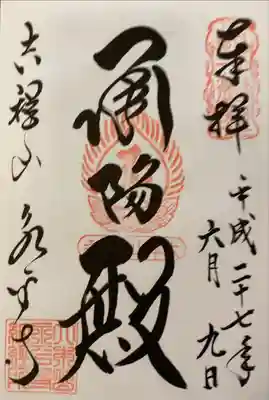 奉拝
平成二十七年
六月九日
承陽殿
吉祥山
永平寺